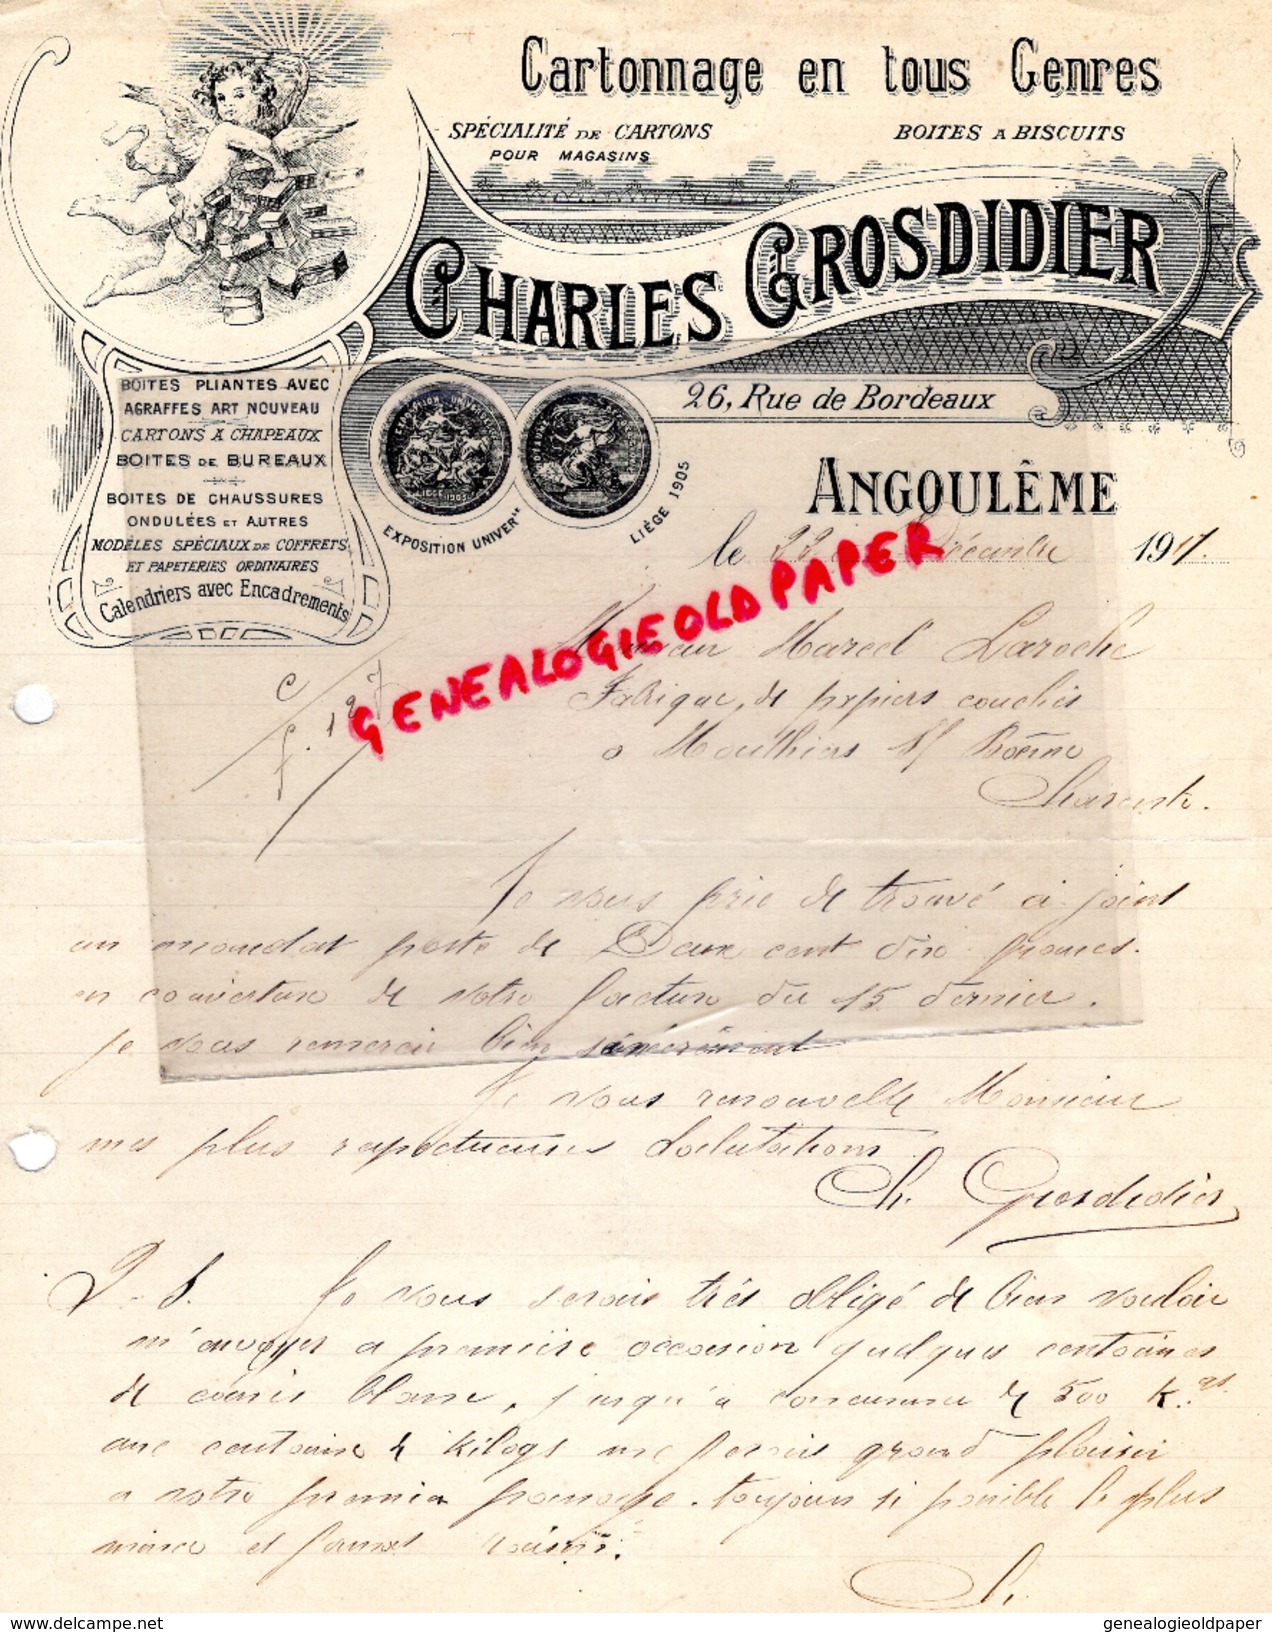 Cartonnage en tous Genres
SPÉCIALITÉ DE CARTONS
POUR MAGASINS
BOITES A BISCUITS
CHARLES GROSDIDIER
26, Rue de Bordeaux
BOITES PLIANTES AVEC
AGRAFFES ART NOUVEAU
CARTONS A CHAPEAUX
BOITES DE BUREAUX
BOITES DE CHAUSSURES
ONDULÉES ET AUTRES
MODÈLES SPÉCIAUX DE COFFRETS
ET PAPETERIES ORDINAIRES
Calendriers avec Encadrements
EXPOSITION UNIVERlle
LIÈGE 1905
ANGOULÊME
le 22 Décembre 1917
GENEALOGIE OLD PAPER
Monsieur Marcel Laroche
Fabrique de papiers couchés
à Mouthiers s/ Boëme
Charente.
Je vous prie de trouvé ci-joint
un mandat poste de Deux cent dix francs.
en couverture de votre facture du 15 dernier.
Je vous remercie bien sincèrement
Je vous renouvelle Monsieur
mes plus respectueuses Salutations
Ch. Grosdidier
P.S. Je vous serais très obligé de bien vouloir
m'envoyer a première occasion quelques centaines
de blanc, jusqu'à concurrence de 500 K.os
une centaine de Kilogs me ferais grand plaisir
a votre premier . toujours si possible le plus
mince et
Ch.
genealogieoldpaper